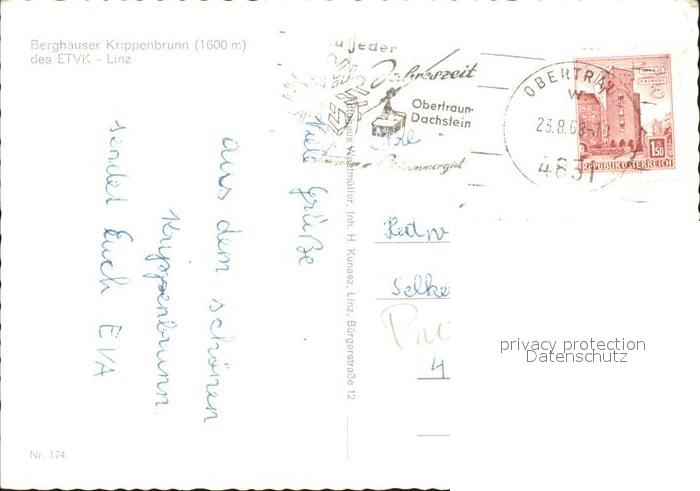 Berghäuser Krippenbrunn (1600 m)
des ETVK - Linz
zu jeder
Jahreszeit
Obertraun-
Dachstein
OBERTRAUN
23.8.68-18
4831
1.50
REPUBLIK ÖSTERREICH
Viele Grüße
aus dem schönen
Krippenbrunn.
sendet Euch EVA
Inh. H. Kunasz, Linz, Bürgerstraße 12
4
privacy protection
Datenschutz
Nr. 174